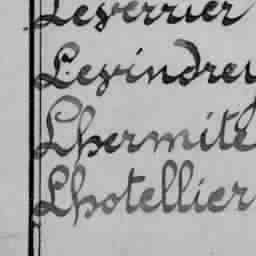 Leverrier
Levindrey
Lhermite
Lhotellier